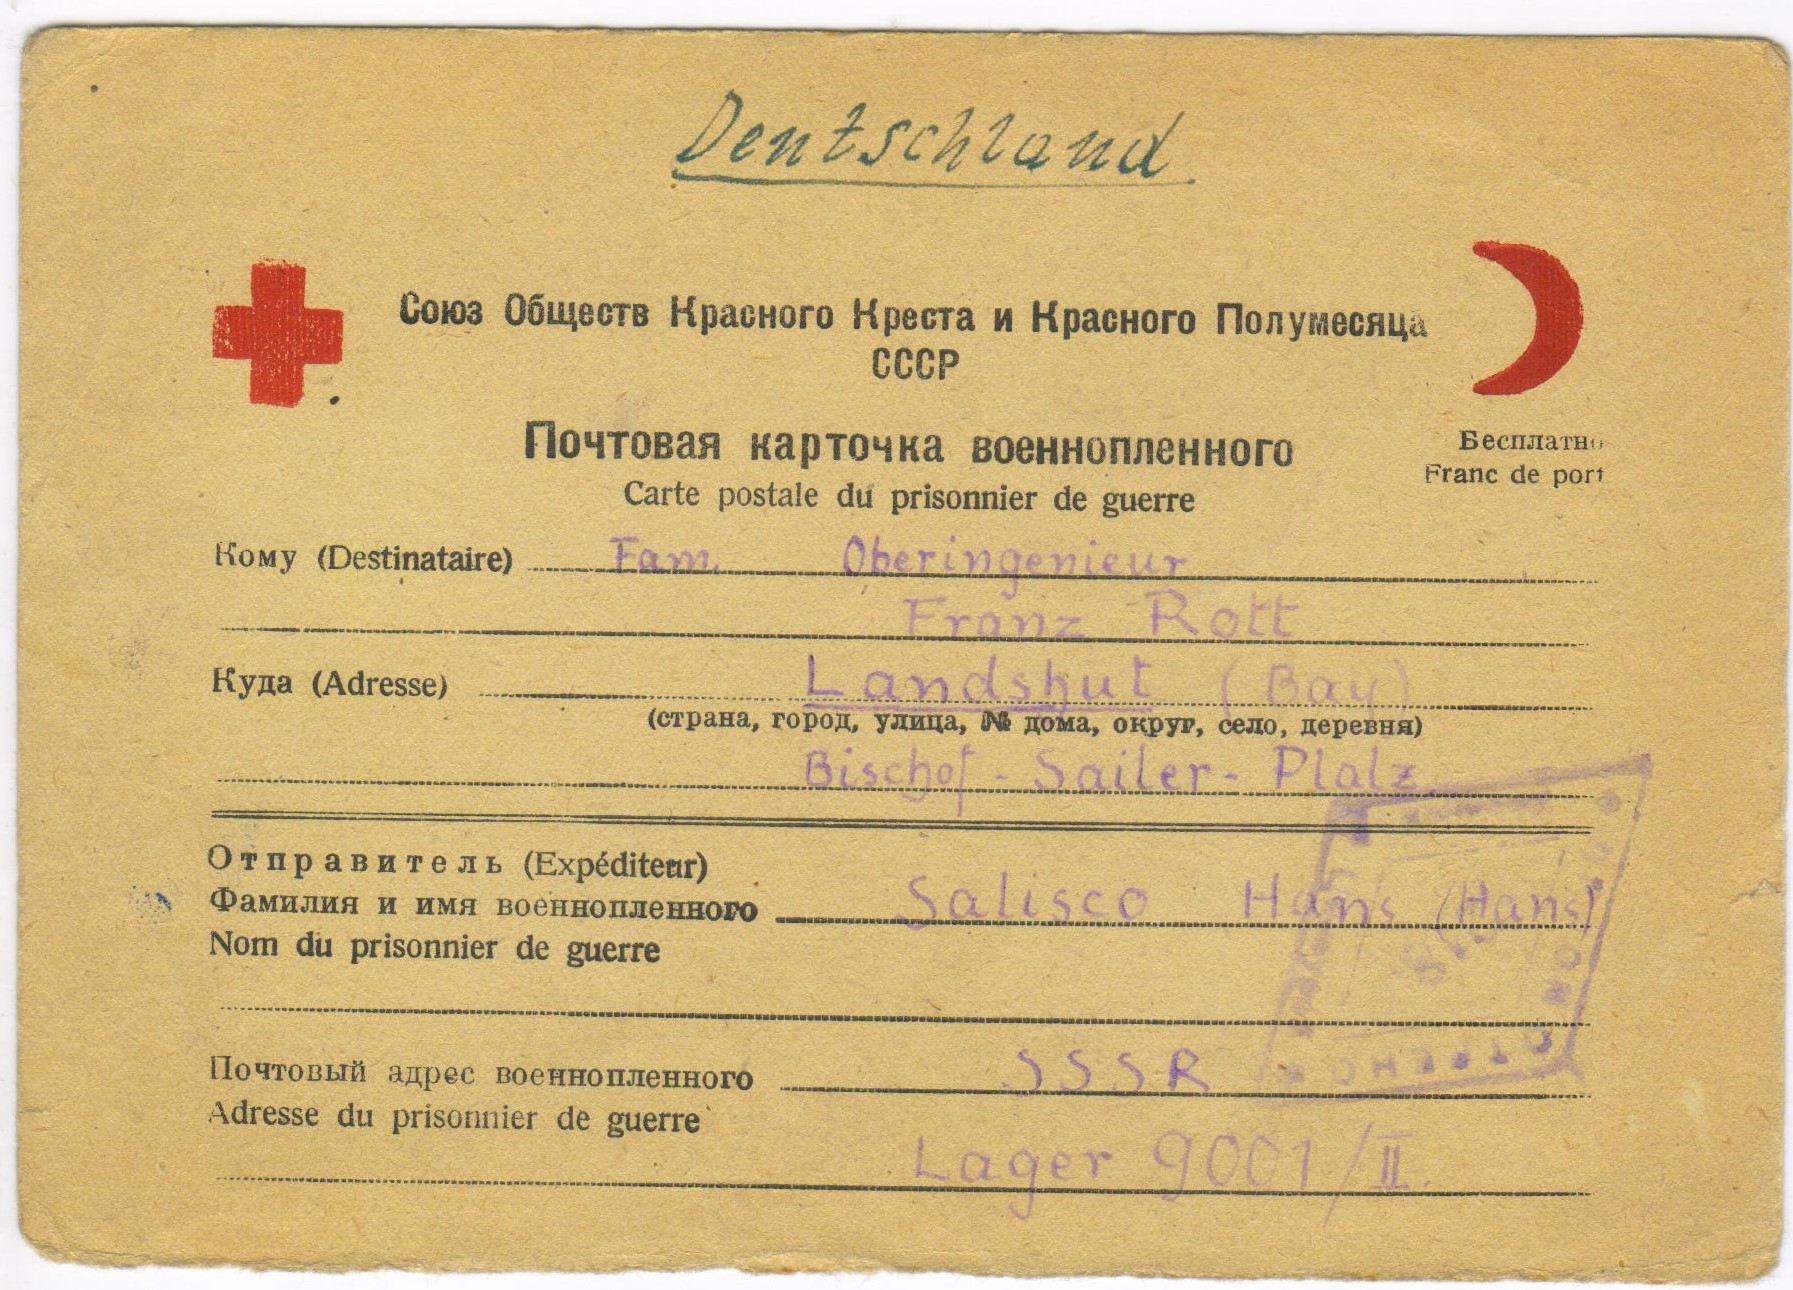 Deutschland
Союз Обществ Красного Креста и Красного Полумесяца
СССР
Почтовая карточка военнопленного
Бесплатно
Carte postale du prisonnier de guerre
Franc de port
Кому (Destinataire) Fam. Oberingenieur
Franz Rott
Куда (Adresse) Landshut (Bay)
(страна, город, улица, № дома, округ, село, деревня)
Bischof - Sailer - Platz
Отправитель (Expéditeur)
Фамилия и имя военнопленного Salisco Hans (Hans)
Nom du prisonnier de guerre
Почтовый адрес военнопленного SSSR
Adresse du prisonnier de guerre
Lager 9001/II.